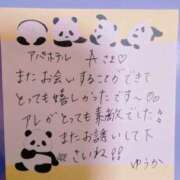 アパホテル Aさま♡
またお会いすることができて
とっても嬉しかったです〜
アレがとっても天国でした
またお誘いして下
さいね!!
ゆうか